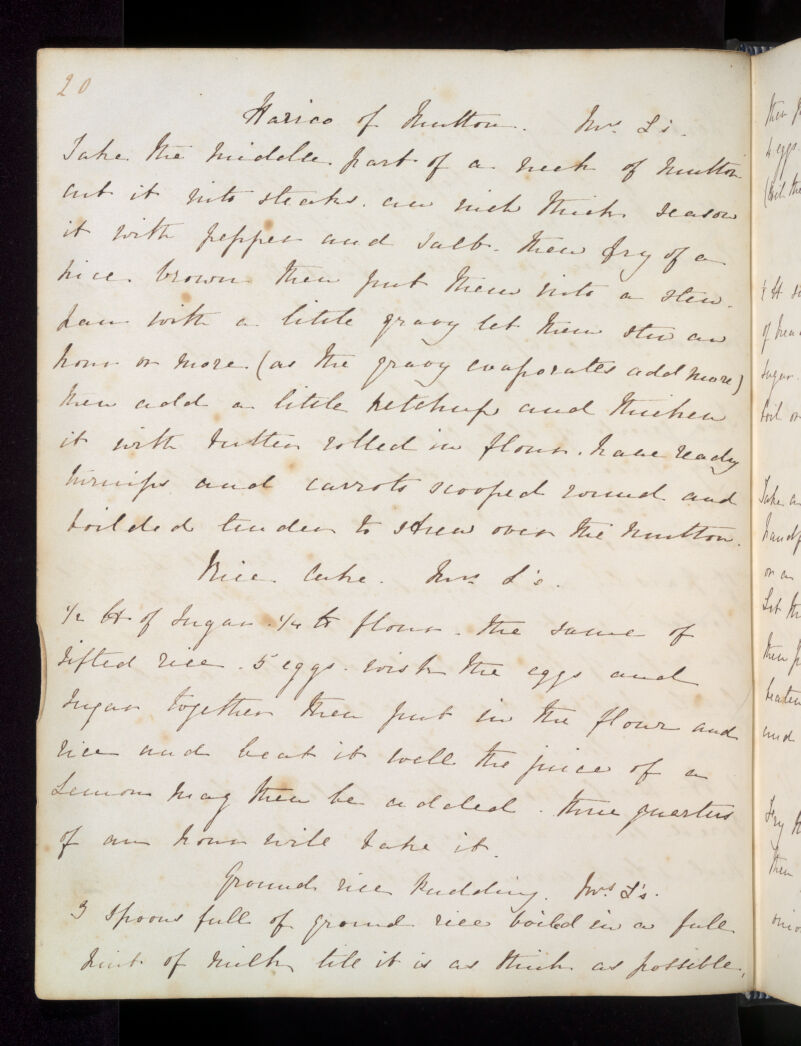 20
Harico of Mutton. Mrs L's.
Take the middle part of a neck of mutton
cut it into steaks. an inch thick season
it with pepper and salt. then fry of a
nice brown then put them into a stew.
pan with a little gravy let them stew an
hour or more. (as the gravy evaporates add more)
then add a little ketchup and thicken
it with butter rolled in flour. have ready
turnips and carrots scooped round and
boilded tender to strew over the mutton.
Rice Cake. Mrs L's.
1/2 lb of Sugar. 1/4 lb flour. the same of
sifted rice. 5 eggs. wisk the eggs and
sugar together then put in the flour and
rice and beat it well the juice of a
Lemon may then be added. three quarters
of an hour will bake it.
Ground rice Pudding. Mrs L's.
3 spoons full of ground rice boild in a full
pint of milk till it is as thick as possible,
then
4 eggs.
of
sugar.
boil
Take
on a
Let
then
beaten
and
Fry
then